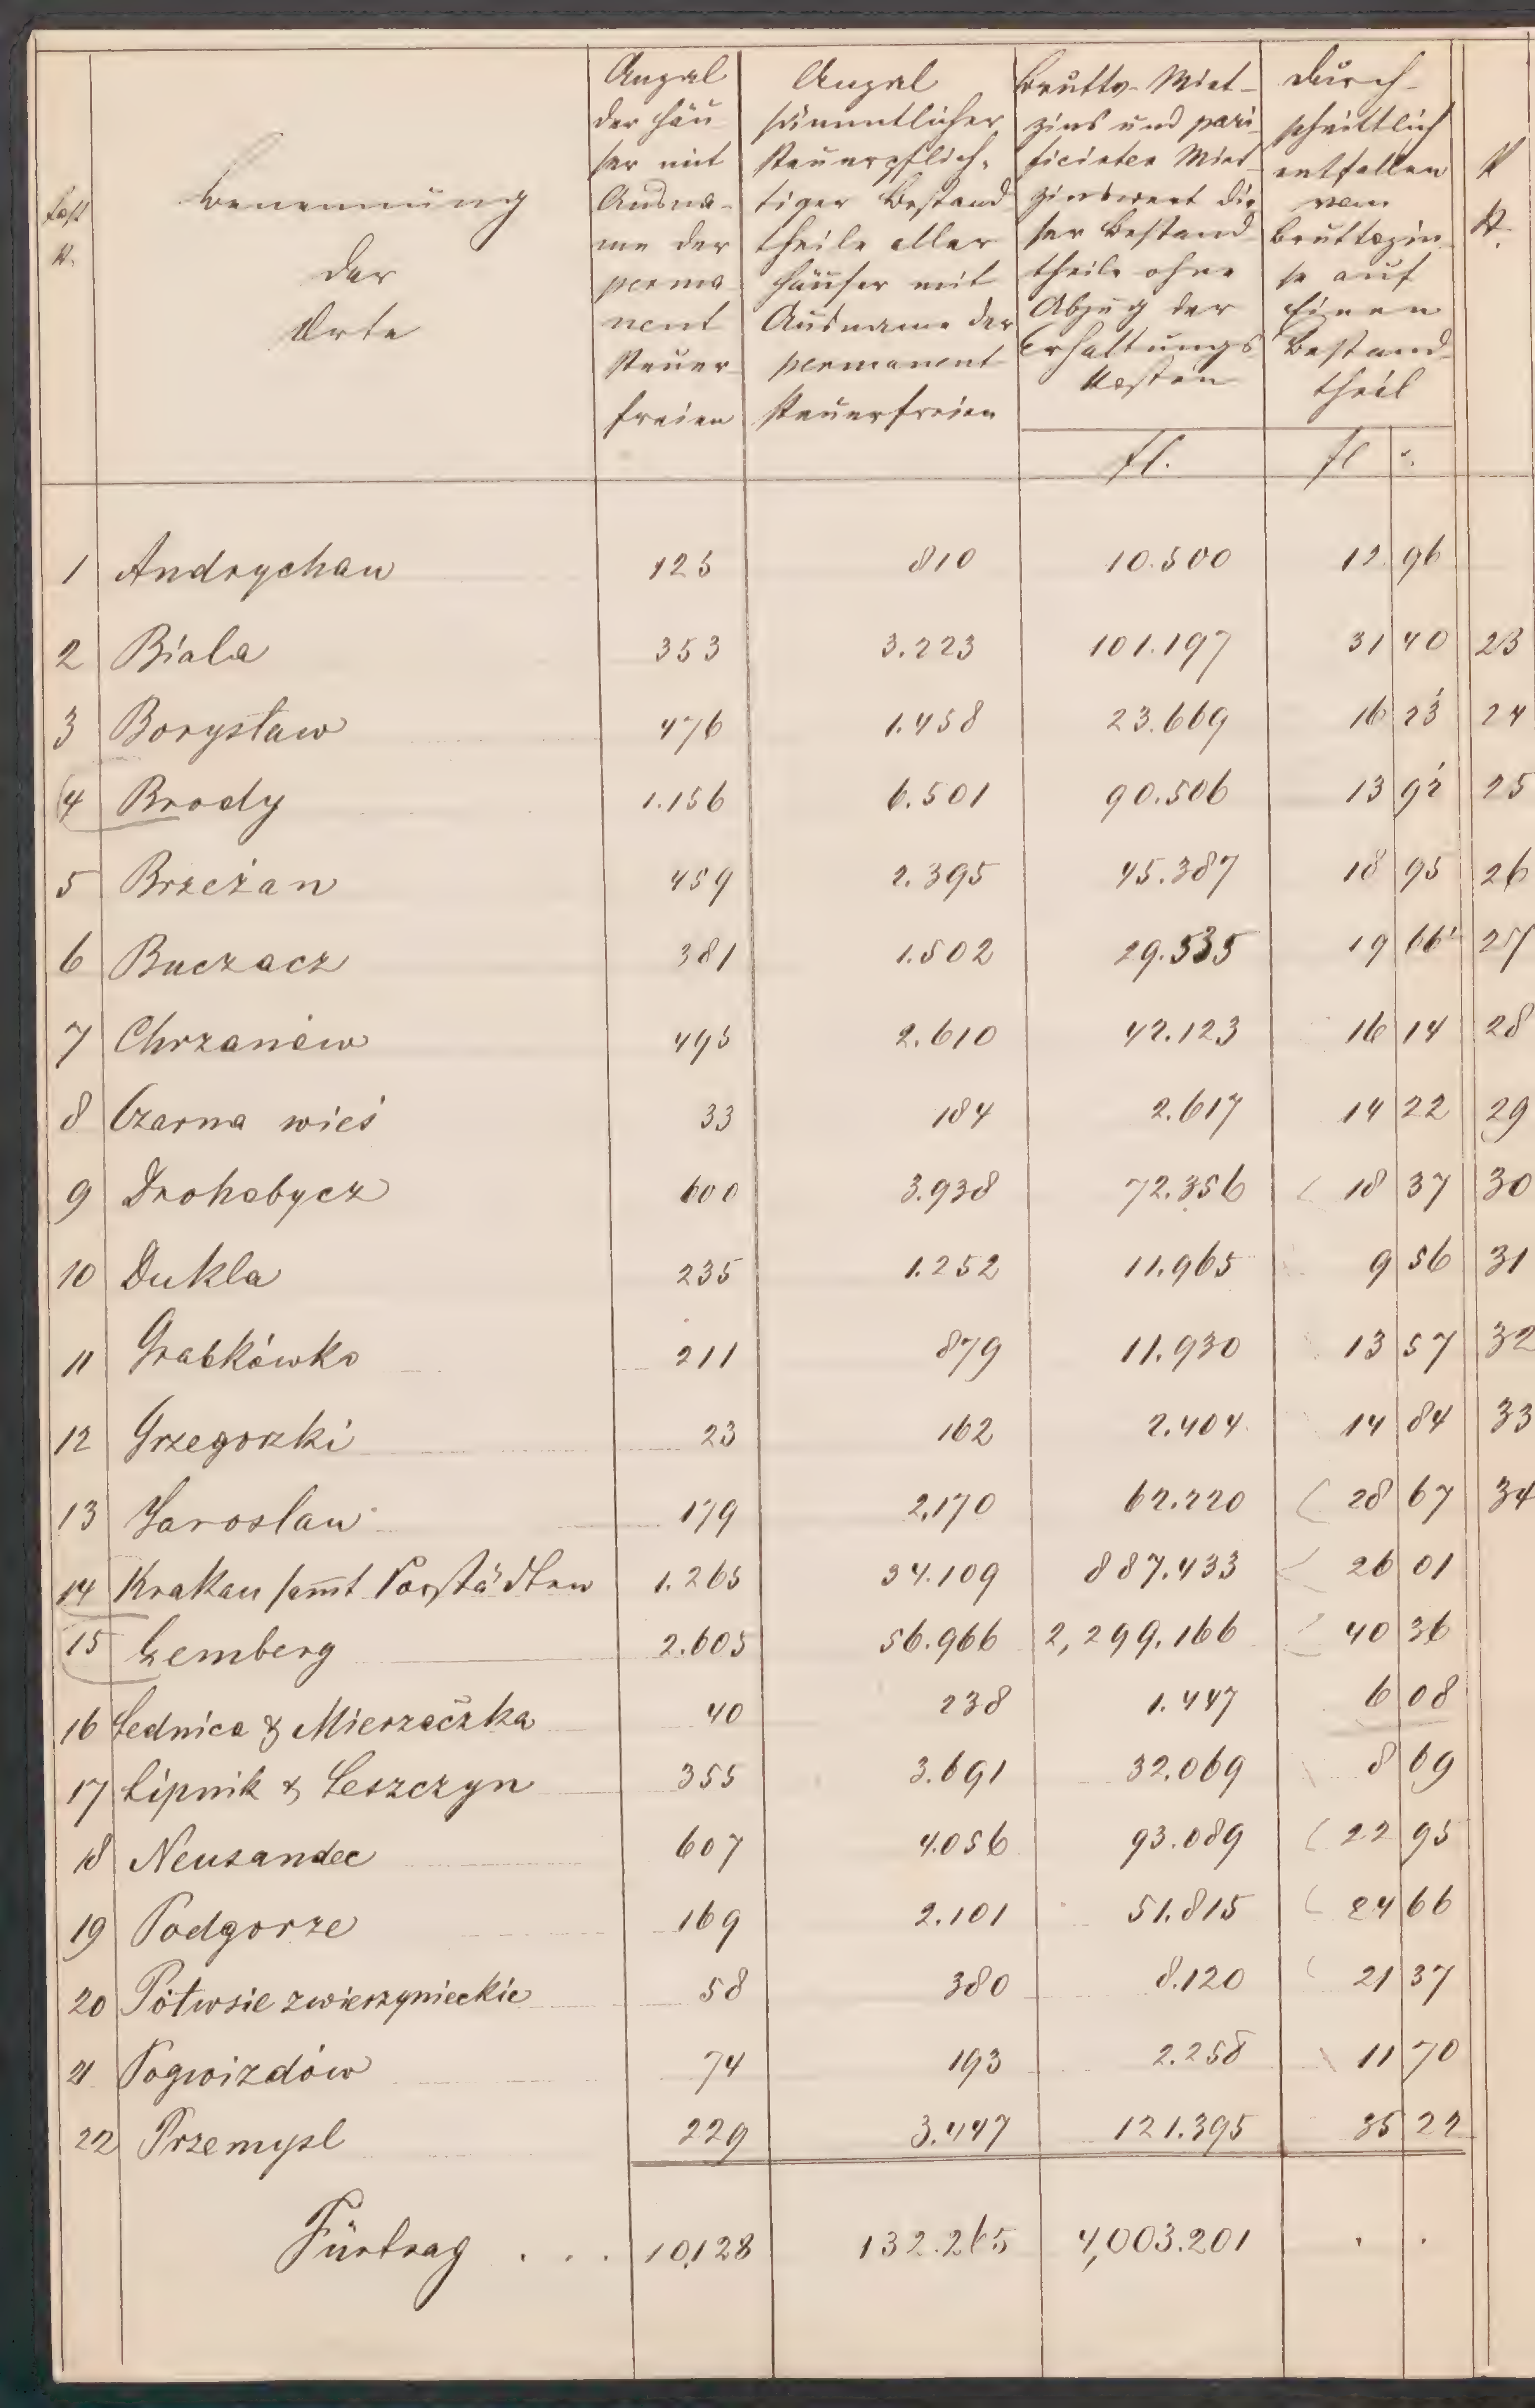 Benennung
der
Orte
Anzal
der Häu-
ser mit
Ausna-
me der
perma-
nent
steuer-
freien
Anzal
sämmtlicher
steuerpflich-
tiger Bestand-
theile aller
Häuser mit
Ausname der
permanent
steuerfreien
Brutto-Miet-
zins und pari-
ficirter Miet-
zinswert die-
ser Bestand-
theile ohne
Abzug der
Erhaltungs-
kosten
fl.
Durch-
schnittlich
entfallen
vom
Bruttozin-
se auf
Einen
Bestand-
theil
fl
1 Andrychau 125 810 10.500 12 96
2 Biala 353 3.223 101.197 31 40 23
3 Borysław 476 1.458 23.669 16 23 24
4 Brody 1.156 6.501 90.506 13 92 25
5 Brzeżan 459 2.395 45.387 18 95 26
6 Buczacz 381 1.502 29.535 19 66 27
7 Chrzanów 495 2.610 42.123 16 14 28
8 Czarna wieś 33 184 2.617 14 22 29
9 Drohobycz 600 3.938 72.356 18 37 30
10 Dukla 235 1.252 11.965 9 56 31
11 Grabkówko 211 879 11.930 13 57 32
12 Grzegorzki 23 162 2.404 14 84 33
13 Jaroslau 179 2,170 62.220 28 67 34
14 Krakau samt Vorstädten 1.265 34.109 887.433 26 01
15 Lemberg 2.605 56.966 2,299.166 40 36
16 Lednica & Mierzączka 40 238 1.447 6 08
17 Lipnik & Leszczyn 355 3.691 32.069 8 69
18 Neusandec 607 4.056 93.089 22 95
19 Podgorze 169 2.101 51.815 24 66
20 Półwsie zwierzynieckie 58 380 8.120 21 37
21 Pogwizdów 74 193 2.258 11 70
22 Przemysl 229 3.447 121.395 35 22
Fürtrag . . . 10,128 132.265 4,003.201 . .